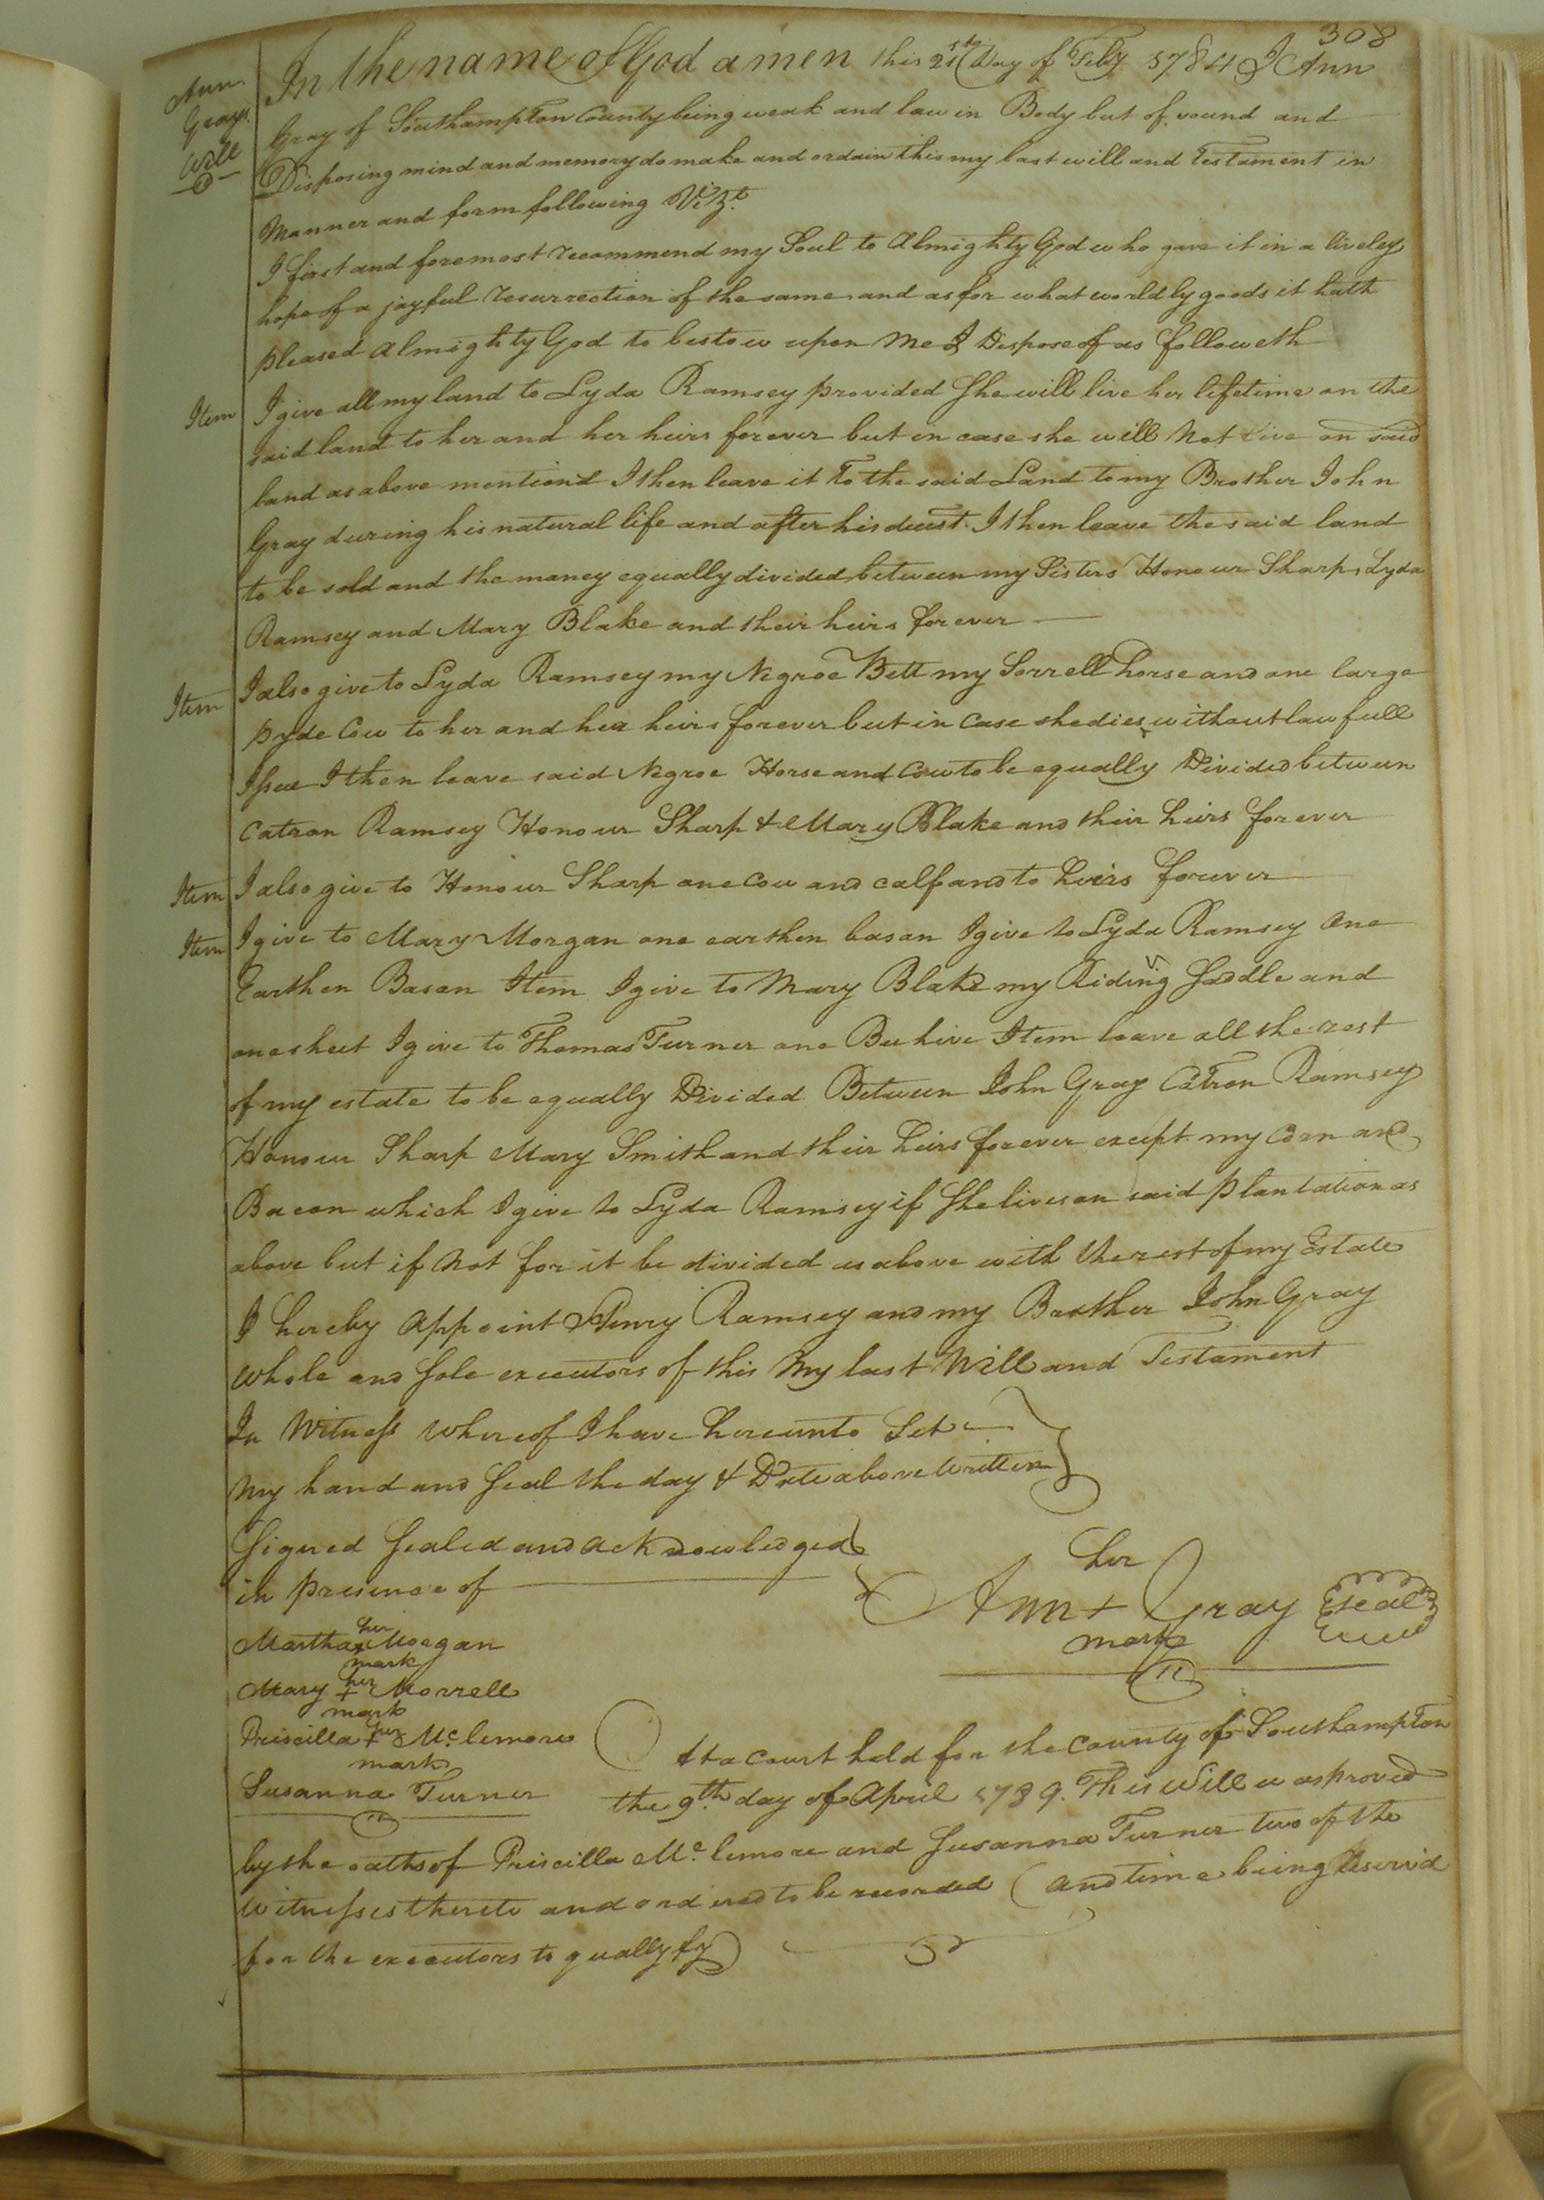 308
Ann
Grays
Will
In the name of God amen this 21st Day of Feby 1784 I Ann
Gray of Southampton County being weak and law in Body but of sound and
Disposing mind and memory do make and ordain this my last will and Testament in
Manner and form following Vizt.
I first and foremost recommend my Soul to Almighty God who gave it in a liveley
hope of a joyful resurrection of the same and as for what worldly goods it hath
pleased Almighty God to bestow upon Me I Dispose of as followeth
Item I give all my land to Lyda Ramsey provided She will live her lifetime on the
said land to her and her heirs forever but in case she will Not live on said
land as above mentiond I then leave it To the said Land to my Brother John
Gray during his natural life and after his deceast I then leave the said land
to be sold and the money equally divided between my Sisters Honour Sharp, Lyda
Ramsey and Mary Blake and their heirs forever
Item I also give to Lyda Ramsey my Negroe Bett my Sorrell horse and one large
pyde Cow to her and her heirs forever but in Case she dies without lawfull
Issue I then leave said Negroe Horse and Cow to be equally Divided between
Catron Ramsey Honour Sharp & Mary Blake and their heirs forever
Item I also give to Honour Sharp one Cow and calf and to heirs forever
Item I give to Mary Morgan one earthen basan I give to Lyda Ramsey one
Earthen Basan Item I give to Mary Blake my Riding Saddle and
one sheet I give to Thomas Turner one Bee hive Item leave all the rest
of my estate to be equally Divided Between John Gray Catron Ramsey
Honour Sharp Mary Smith and their heirs forever except my Corn and
Bacon which I give to Lyda Ramsey if She lives on said plantation as
above but if Not for it be divided as above with the rest of my Estate
I hereby appoint Henry Ramsey and my Brother John Gray
Whole and Sole executors of this My last Will and Testament
In Witness whereof I have hereunto Set
My hand and Seal the day & Date above Written
Signed Sealed and acknowledged
in presence of
her
Ann + Gray Seal
mark
her
Martha x Morgan
mark
her
Mary + Morrell
mark
her
Priscilla + Mc.lemore
mark
Susanna Turner
At a Court held for the County of Southampton
the 9th day of April 1789. This Will was proved
by the oaths of Priscilla Mc.lemore and Susanna Turner two of the
Witnesses thereto and ordered to be recorded (and time being Reservd
for the executors to quallyfy)